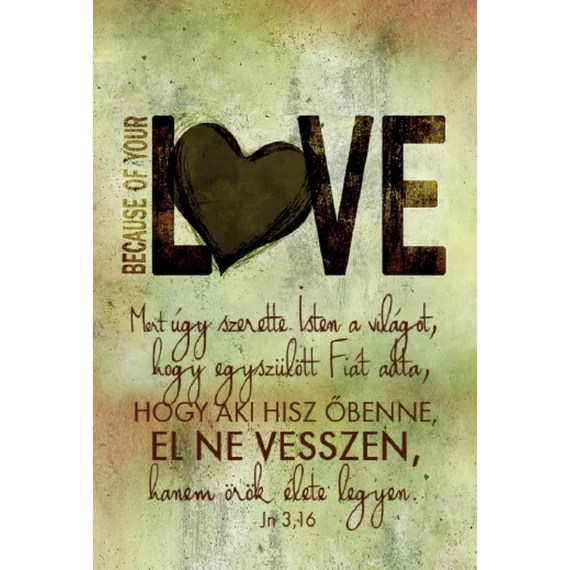 BECAUSE OF YOUR
LOVE
Mert úgy szerette Isten a világot,
hogy egyszülött Fiát adta,
HOGY AKI HISZ ŐBENNE,
EL NE VESSZEN,
hanem örök élete legyen.
Jn 3,16